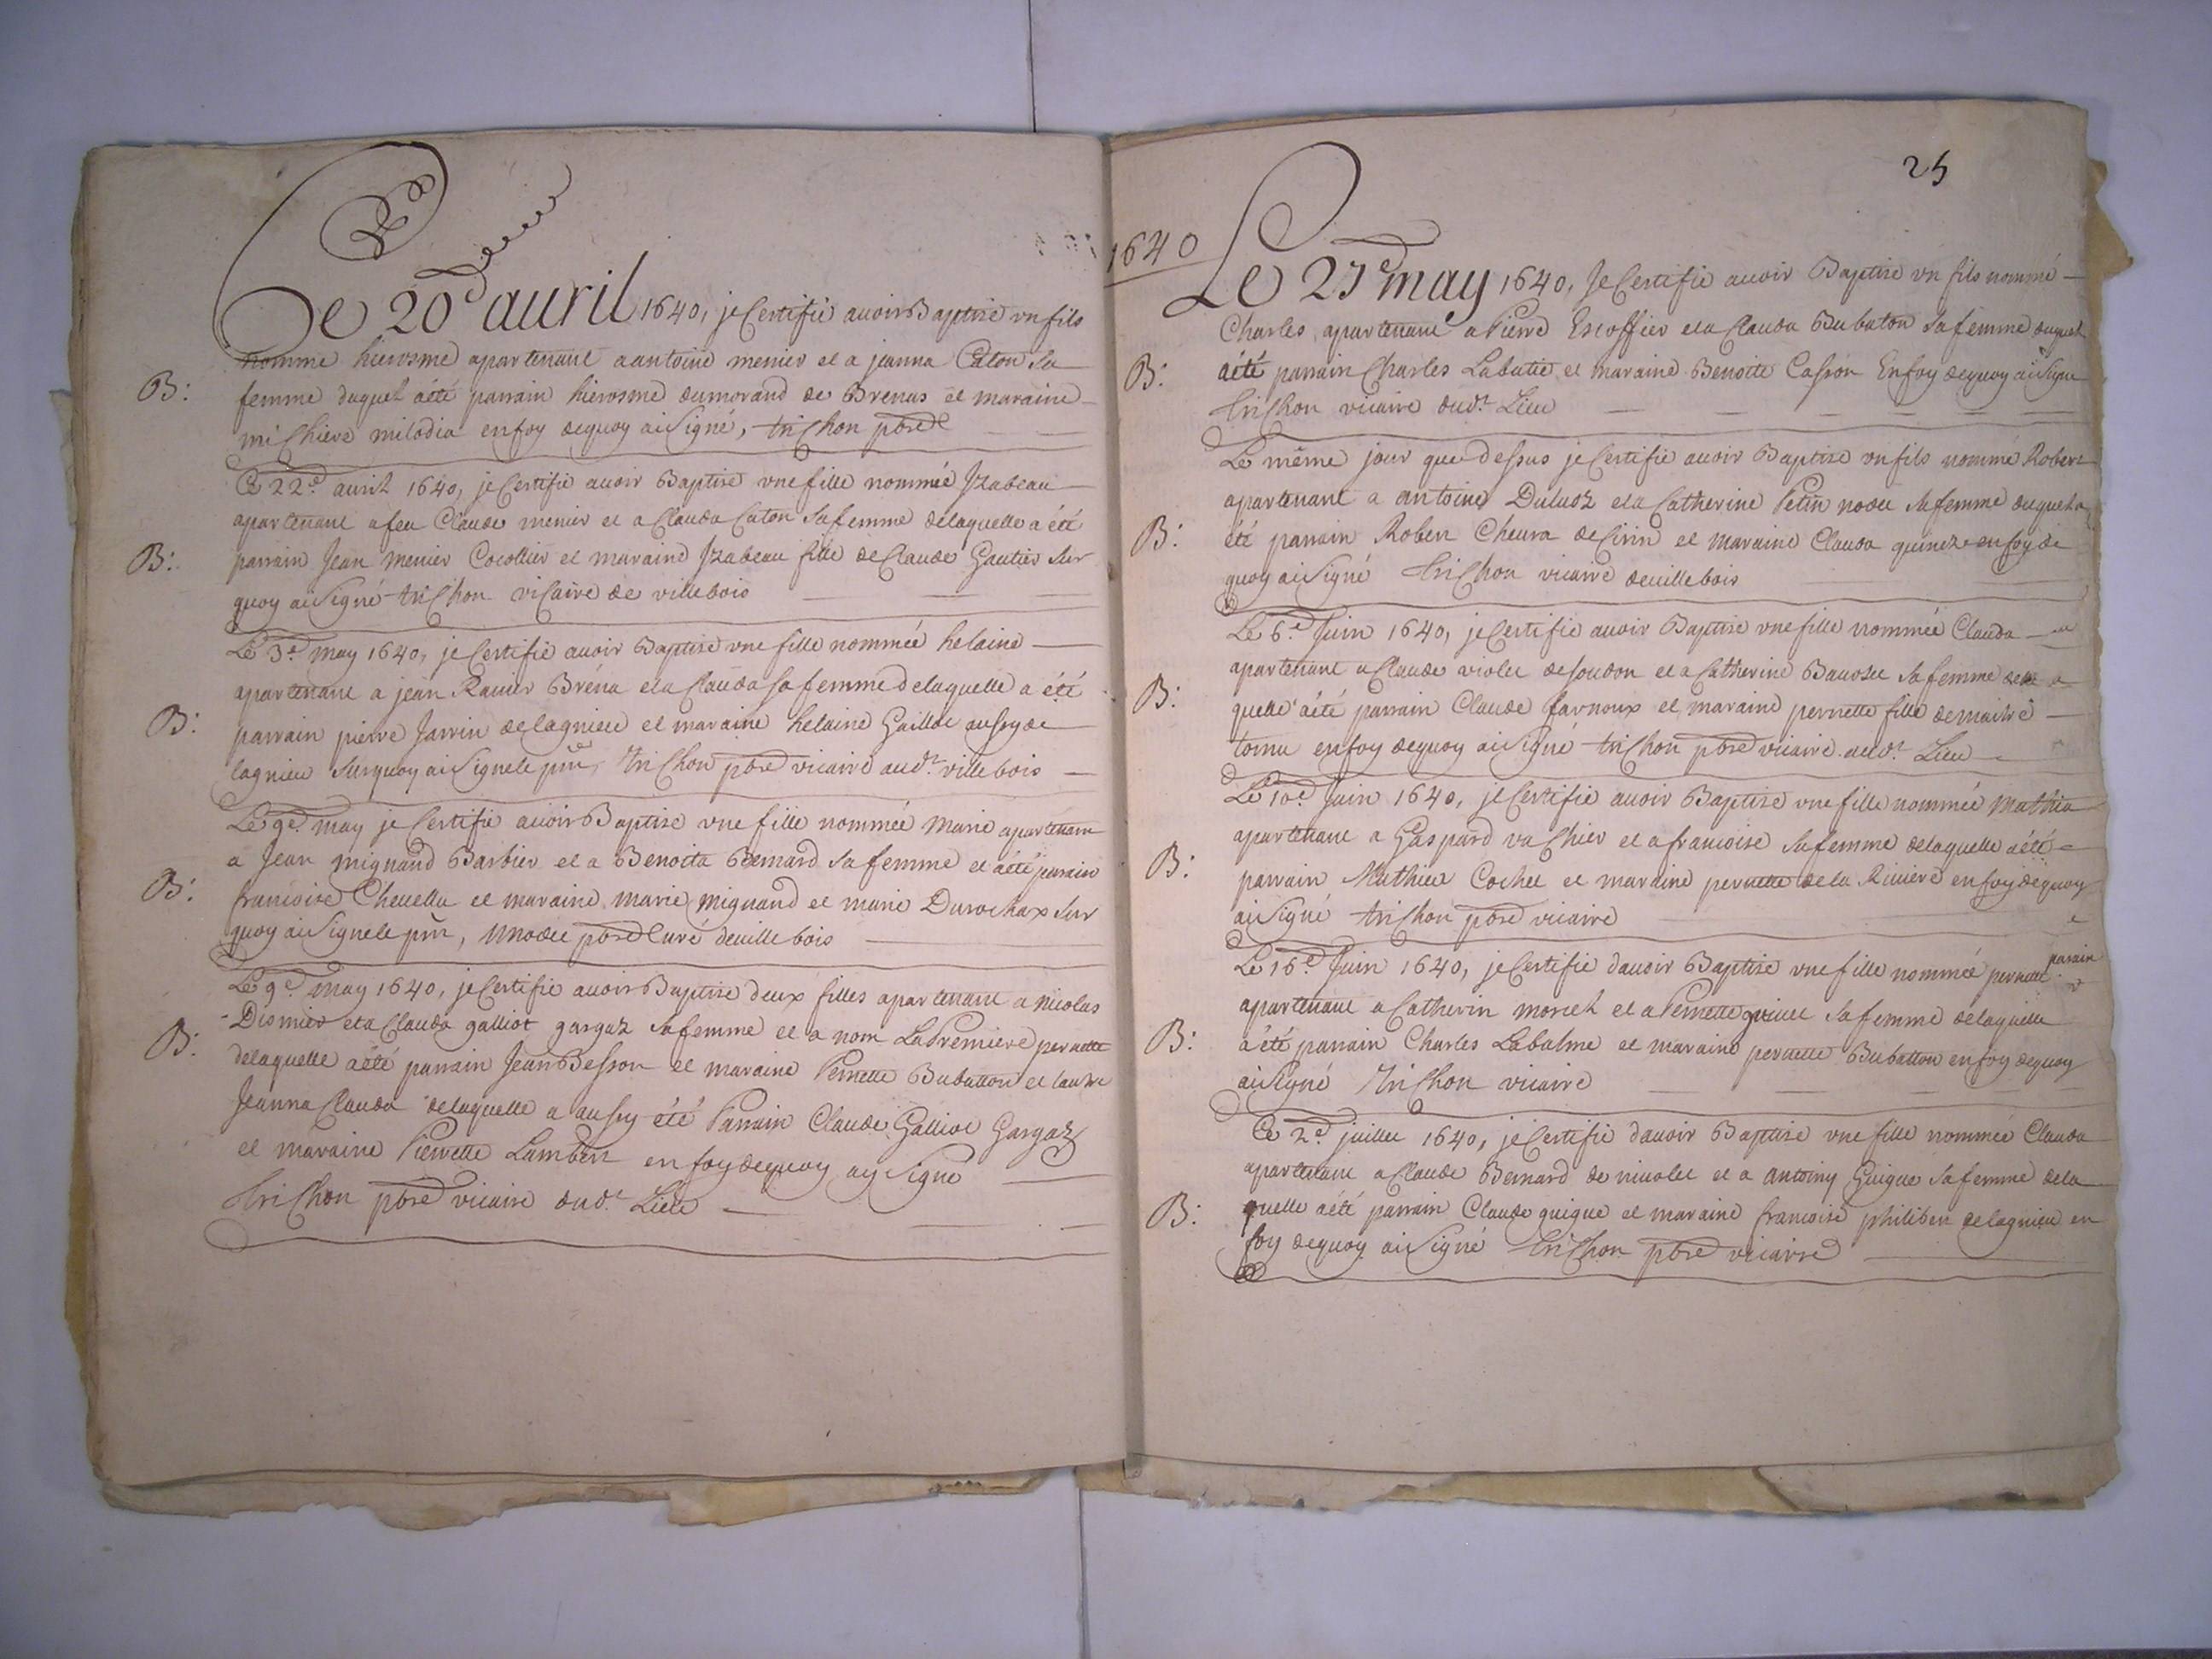 Ce 20e auril 1640, je Certifie auoir Baptisé vn fils
nommé hierosme apartenant a antoine menier et a jeanna Caton sa
B: femme duquel a été parrain hierosme dumorand de Brenas et maraine
michiere milodia en foy dequoy ai Signé, trichon pbre
Ce 22e auril 1640, je Certifie auoir Baptisé vne fille nommée Jzabeau
apartenant a feu Claude menier et a Clauda Caton sa femme delaquelle a été
B: parrain Jean menier Cocollier et maraine Jzabeau fille de Claude Gautier sur
quoy ai Signé trichon vicaire de villebois
Le 3e may 1640, je Certifie auoir Baptisé vne fille nommée helaine
apartenant a jean Rauier Bréna et a Clauda sa femme delaquelle a été
B: parrain pierre Jarrin delagnieu et maraine helaine Gaillot aussy de
lagnieu surquoy ai Signé le pnt, trichon pbre vicaire audt villebois
Le 9e may je Certifie auoir Baptisé vne fille nommée Marie apartenant
a Jean mignand Barbier et a Benoita Bernard sa femme et a été parain
B: francoise Cheuella et maraine marie mignand et marie Durochax sur
quoy ai Signé le pnt, pbre Curé deuillebois
Le 9e may 1640, je Certifie auoir Baptisé deux filles apartenant a nicolas
Dismier et a Clauda galliot gargaz sa femme et a nom La Premiere pernette
B: delaquelle a été parrain Jean Besson et maraine Pernette Bubatton et lautre
Jeanna Clauda delaquelle a aussy été Parrain Claude Galliot Gargaz
et maraine Pierrette Lambert en foy dequoy ay Signé
trichon pbre vicaire dudt Lieu
25
1640
Le 27e may 1640, Je Certifie auoir Baptisé vn fils nommé
Charles, apartenant a Pierre Escoffier et a Clauda Bubaton sa femme duquel
B: a été parrain Charles Labatie et maraine Benoite Casson En foy dequoy ai Signé
trichon vicaire dudt Lieu
Le même jour que dessus je Certifie auoir Baptisé vn fils nommé Robert
apartenant a antoine Duluoz et a Catherine Petin sa femme duquel a
B: été parrain Robert Cheura de Cirin et maraine Clauda quinez en foy de
quoy ai Signé trichon vicaire deuillebois
Le 6e Juin 1640, je Certifie auoir Baptisé vne fille nommée Clauda
apartenant a Claude violet desoudon et a Catherine Bauoset sa femme dela
B: quelle a été parrain Claude farnoux et maraine pernette fille de maitre
tomu en foy dequoy ai Signé trichon pbre vicaire audt Lieu
Le 10e Juin 1640, je Certifie auoir Baptisé vne fille nommée Mathia
apartenant a Gaspard vachier et a francoise sa femme delaquelle a été
B: parrain Mathieu Cochet et maraine pernette dela Riuiere en foy dequoy
ai Signé trichon pbre vicaire
Le 16e Juin 1640, je Certifie dauoir Baptisé vne fille nommée pernette
apartenant a Catherin morich et a Pernette sa femme delaquelle
B: a été parrain Charles Labalme et maraine pernette Bubatton en foy dequoy
ai Signé trichon vicaire
Ce 2e juillet 1640, je Certifie dauoir Baptisé vne fille nommée Clauda
apartenant a Claude Bernard de niuolet et a antoiny Guigue sa femme dela
B: quelle a été parrain Claude guigue et maraine francoise philibert delagnieu en
foy dequoy ai Signé trichon pbre vicaire